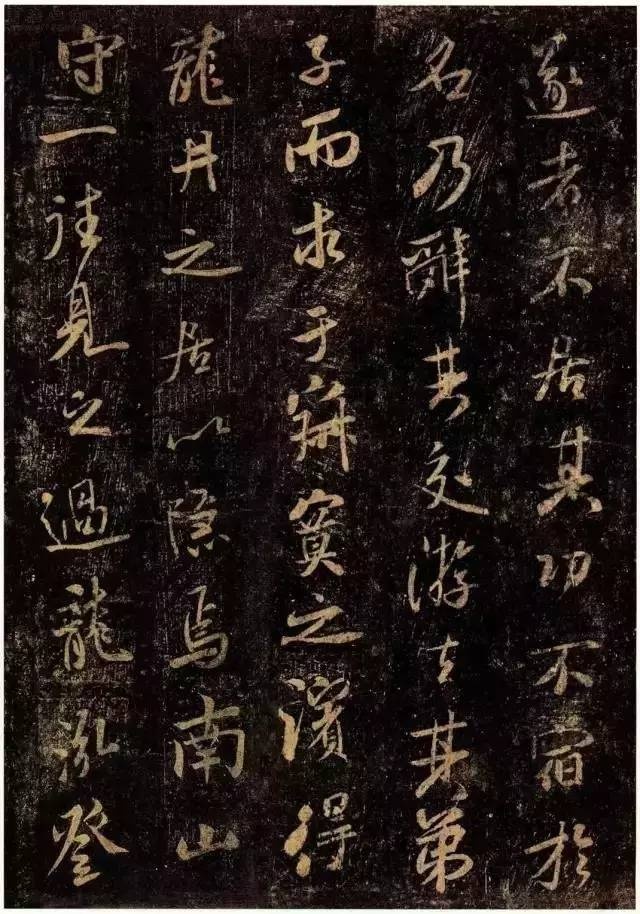 遂者不居其功不宿於
名乃辭其交游去其弟
子而求于寂寞之濱得
龍井之居以隱焉南山
守一往見之過龍泓登